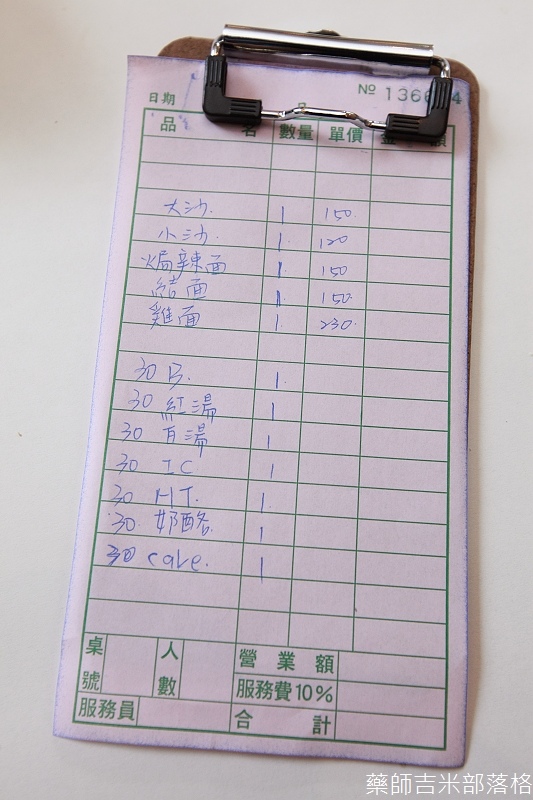 日期 № 1366 4
品 名 數量 單價 金 額
大沙. 1 150
小沙. 1 120
焗辣面 1 150
結面 1 150
雞面 1 230
30 B. 1
30 紅湯 1
30 百湯 1
30 IC 1
30 HT. 1
30 奶酪 1
30 cake. 1
桌號 人數 營業額
服務費10%
服務員 合計
藥師吉米部落格